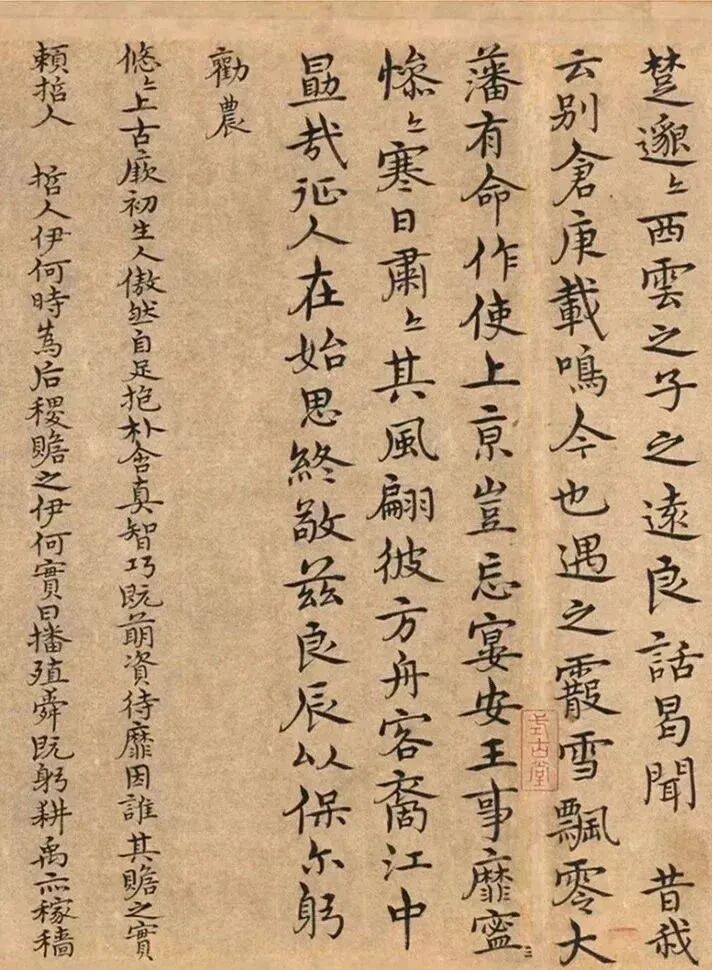 楚邈〻西雲之子之遠良話曷聞　昔我
云别倉庚載鳴今也遇之霰雪飄零大
藩有命作使上亰豈忘宴安王事靡寍
慘〻寒日肅〻其風翩彼方舟容裔江中
勗哉征人在始思終敬兹良辰以保尔躬
勸農
悠〻上古厥初生人傲然自足抱朴含真智巧既萌資待靡因誰其贍之實
頼哲人　哲人伊何時為后稷贍之伊何實曰播殖舜既躬耕禹亦稼穡
式古堂